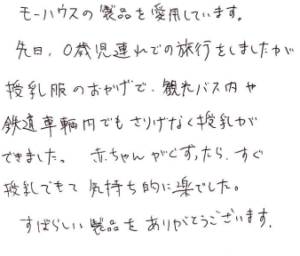 モーハウスの製品を愛用しています。
先日、0歳児連れでの旅行をしましたが
授乳服のおかげで、観光バス内や
鉄道車輌内でもさりげなく授乳が
できました。 赤ちゃんがぐずったら、すぐ
授乳できて気持ち的に楽でした。
すばらしい製品をありがとうございます。